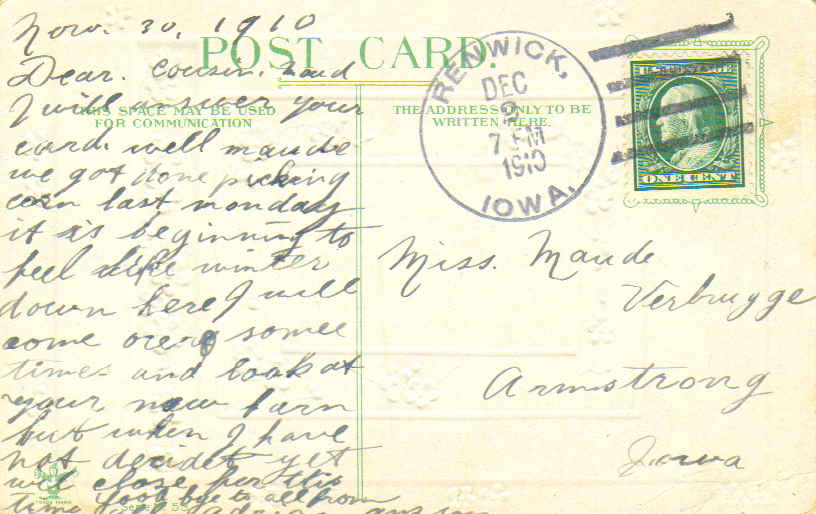 Nov. 30, 1910
Dear. Cousin. Maud
I will answer your
card. well maude
we got done picking
corn last monday
it is beginning to
feel like winter
down here I will
come over some
times and look at
your new barn
but when I have
not decidet yet
will close for this
time Good bye to all from
POST CARD.
THIS SPACE MAY BE USED
FOR COMMUNICATION
THE ADDRESS ONLY TO BE
WRITTEN HERE.
RENWICK,
DEC
2
7 PM
1910
IOWA.
U.S. POSTAGE
ONE CENT
Miss. Maude
Verbrugge
Armstrong
Iowa